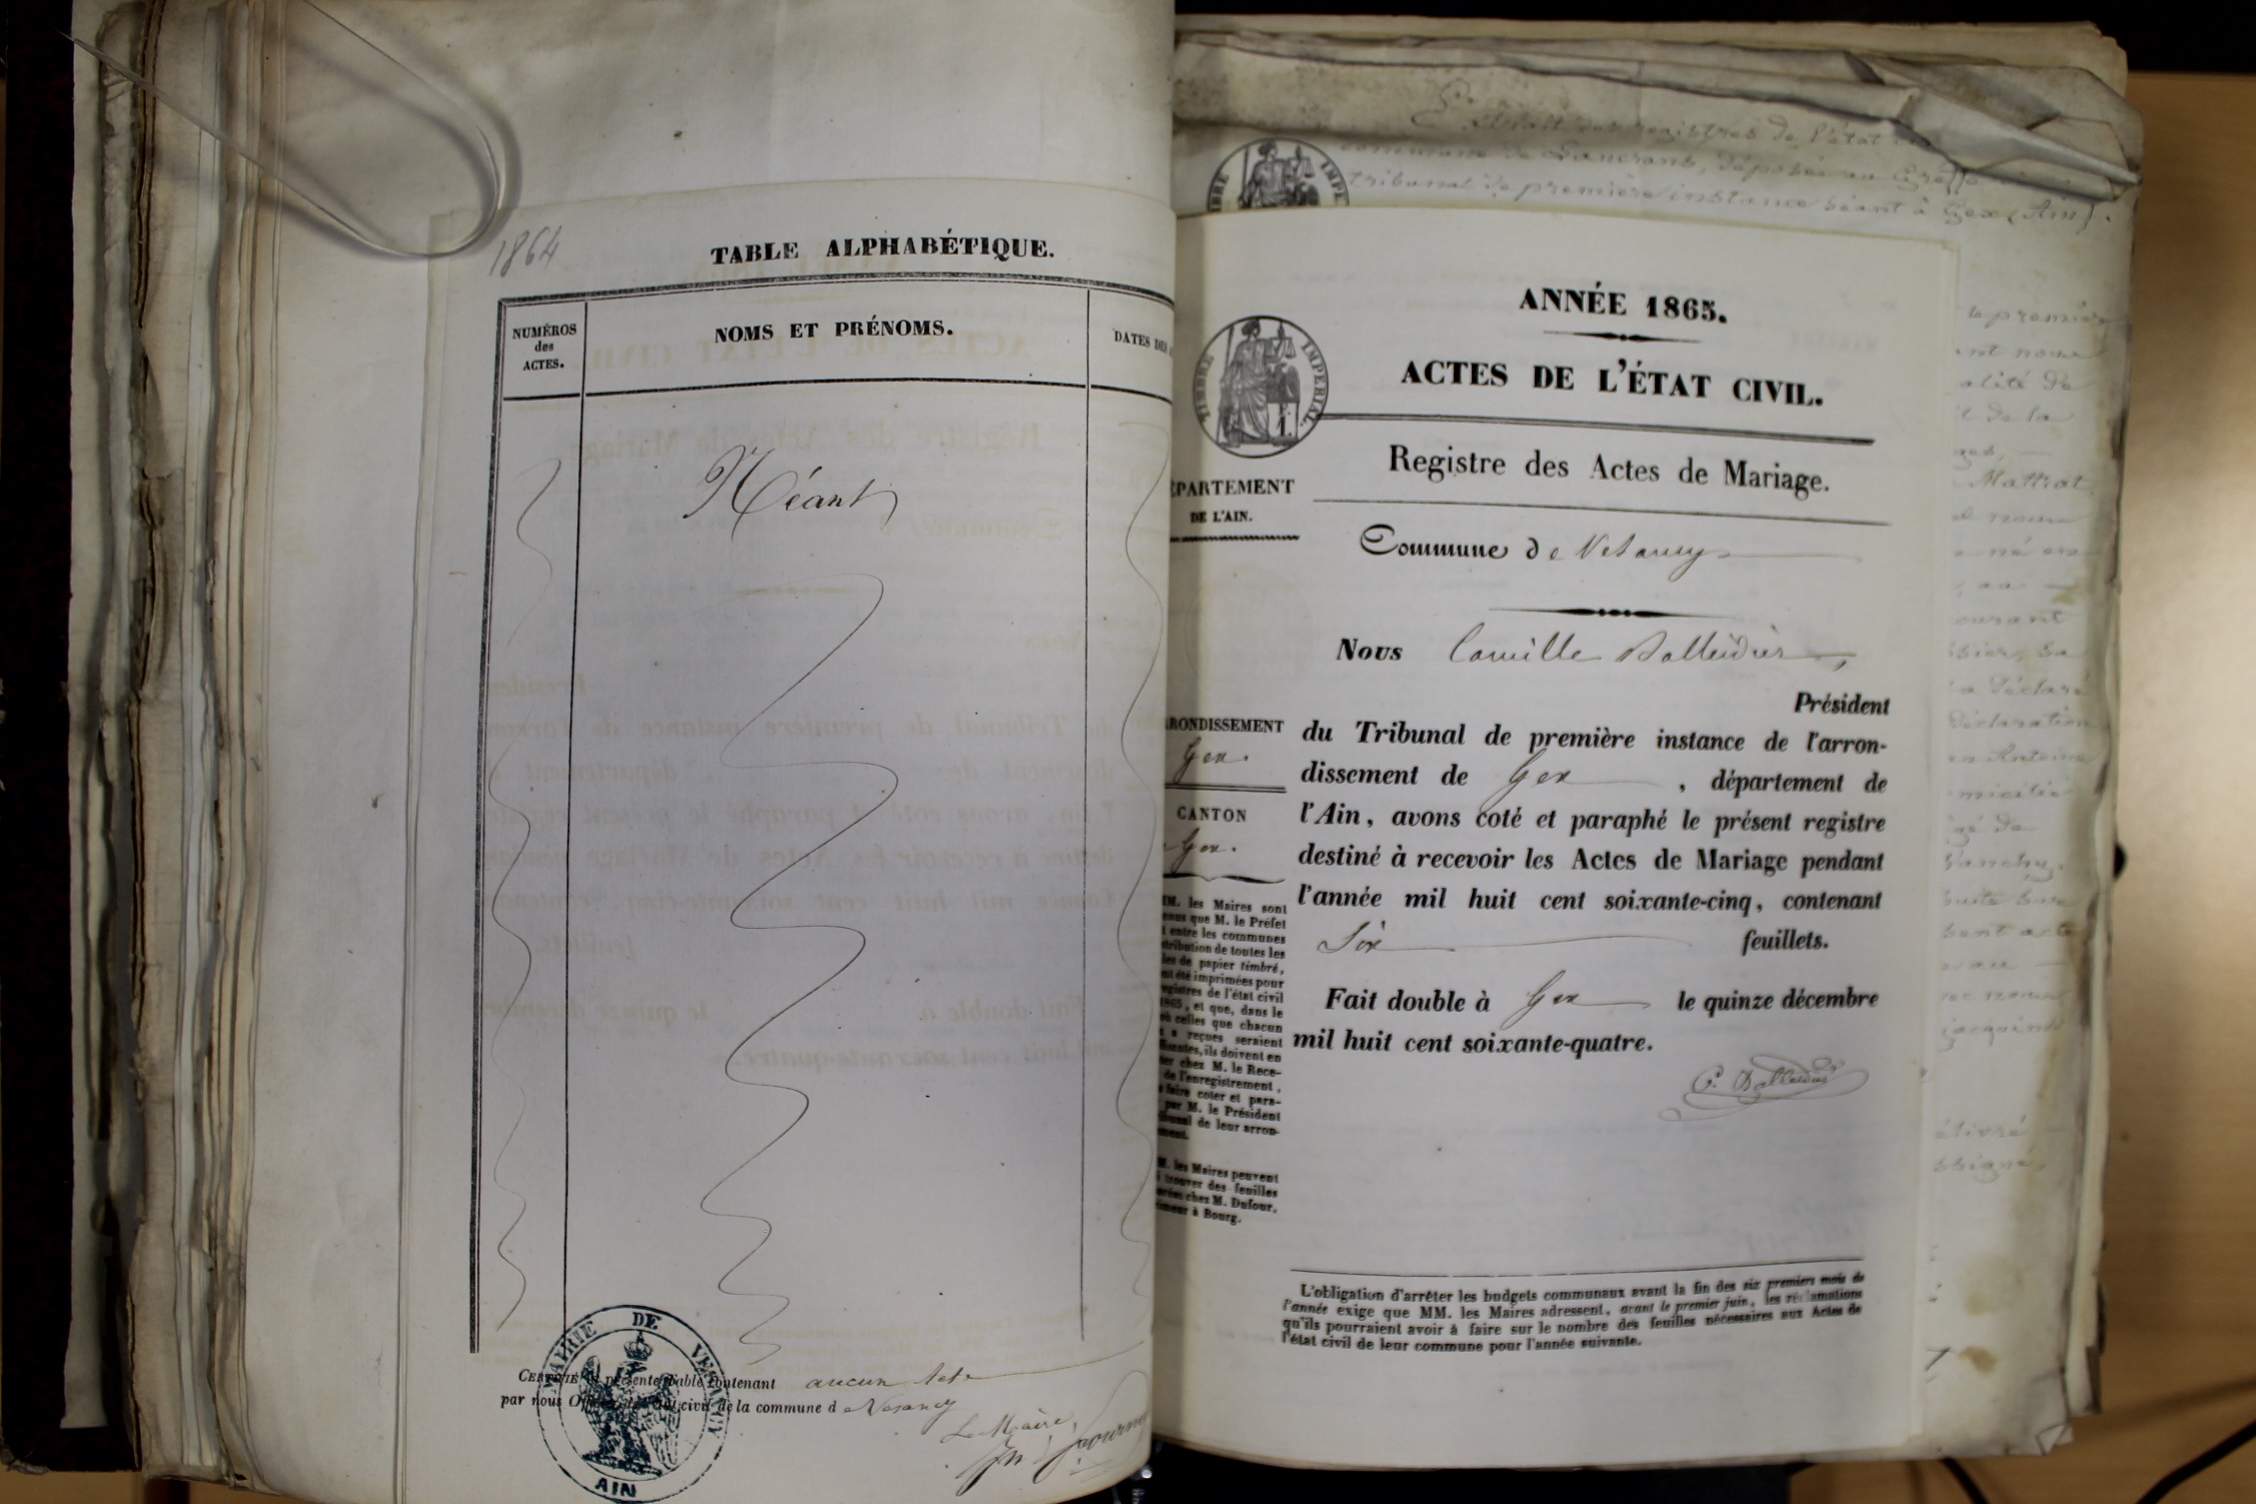 1864
TABLE ALPHABÉTIQUE.
NUMÉROS
des
ACTES.
NOMS ET PRÉNOMS.
DATES DES
Néant
MAIRIE DE VESANCY
AIN
CERTIFIÉ la présente Table contenant aucun Acte
par nous Officier de l'état civil de la commune de Vesancy
Le Maire,
Extrait des registres de l'état
commune de déposés au Greffe
tribunal de première instance séant à Gex (Ain).
TIMBRE IMPÉRIAL.
ANNÉE 1865.
ACTES DE L'ÉTAT CIVIL.
Registre des Actes de Mariage.
PARTEMENT
DE L'AIN.
Commune de Vesancy
Nous Camille Balleidier,
Président
RONDISSEMENT
Gex.
CANTON
Gex.
du Tribunal de première instance de l'arron-
dissement de Gex, département de
l'Ain, avons coté et paraphé le présent registre
destiné à recevoir les Actes de Mariage pendant
l'année mil huit cent soixante-cinq, contenant
Six feuillets.
Fait double à Gex le quinze décembre
mil huit cent soixante-quatre.
C. Balleidier
M. les Maires sont
que M. le Préfet
entre les communes
tribution de toutes les
de papier timbré,
été imprimées pour
gistres de l'état civil
1865, et que, dans le
celles que chacun
a reçues seraient
ils doivent en
chez M. le Rece-
de l'enregistrement,
faire coter et para-
par M. le Président
bunal de leur arron-
ment.
M. les Maires peuvent
trouver des feuilles
chez M. Dufour,
imeur à Bourg.
L'obligation d'arrêter les budgets communaux avant la fin des six premiers mois de
l'année exige que MM. les Maires adressent, avant le premier juin, les réclamations
qu'ils pourraient avoir à faire sur le nombre des feuilles nécessaires aux Actes de
l'état civil de leur commune pour l'année suivante.